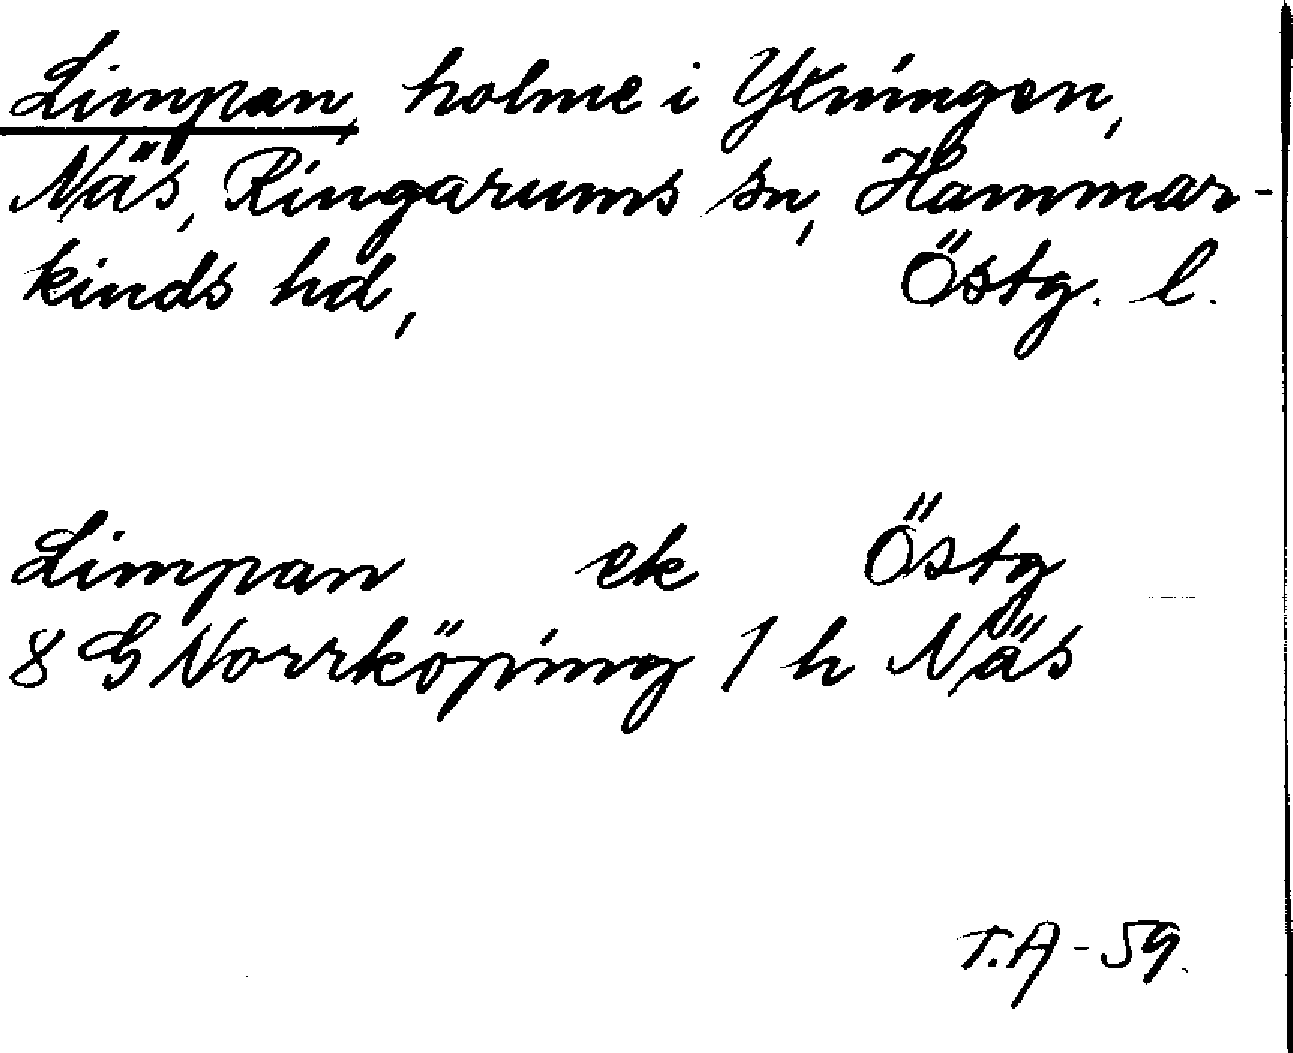 Limpan, holme i Ytningen,
Näs, Ringarums sn, Hammar-
kinds hd, Östg. l.
Limpan ek Östg
8 G Norrköping 1 h Näs
T.A - 59.